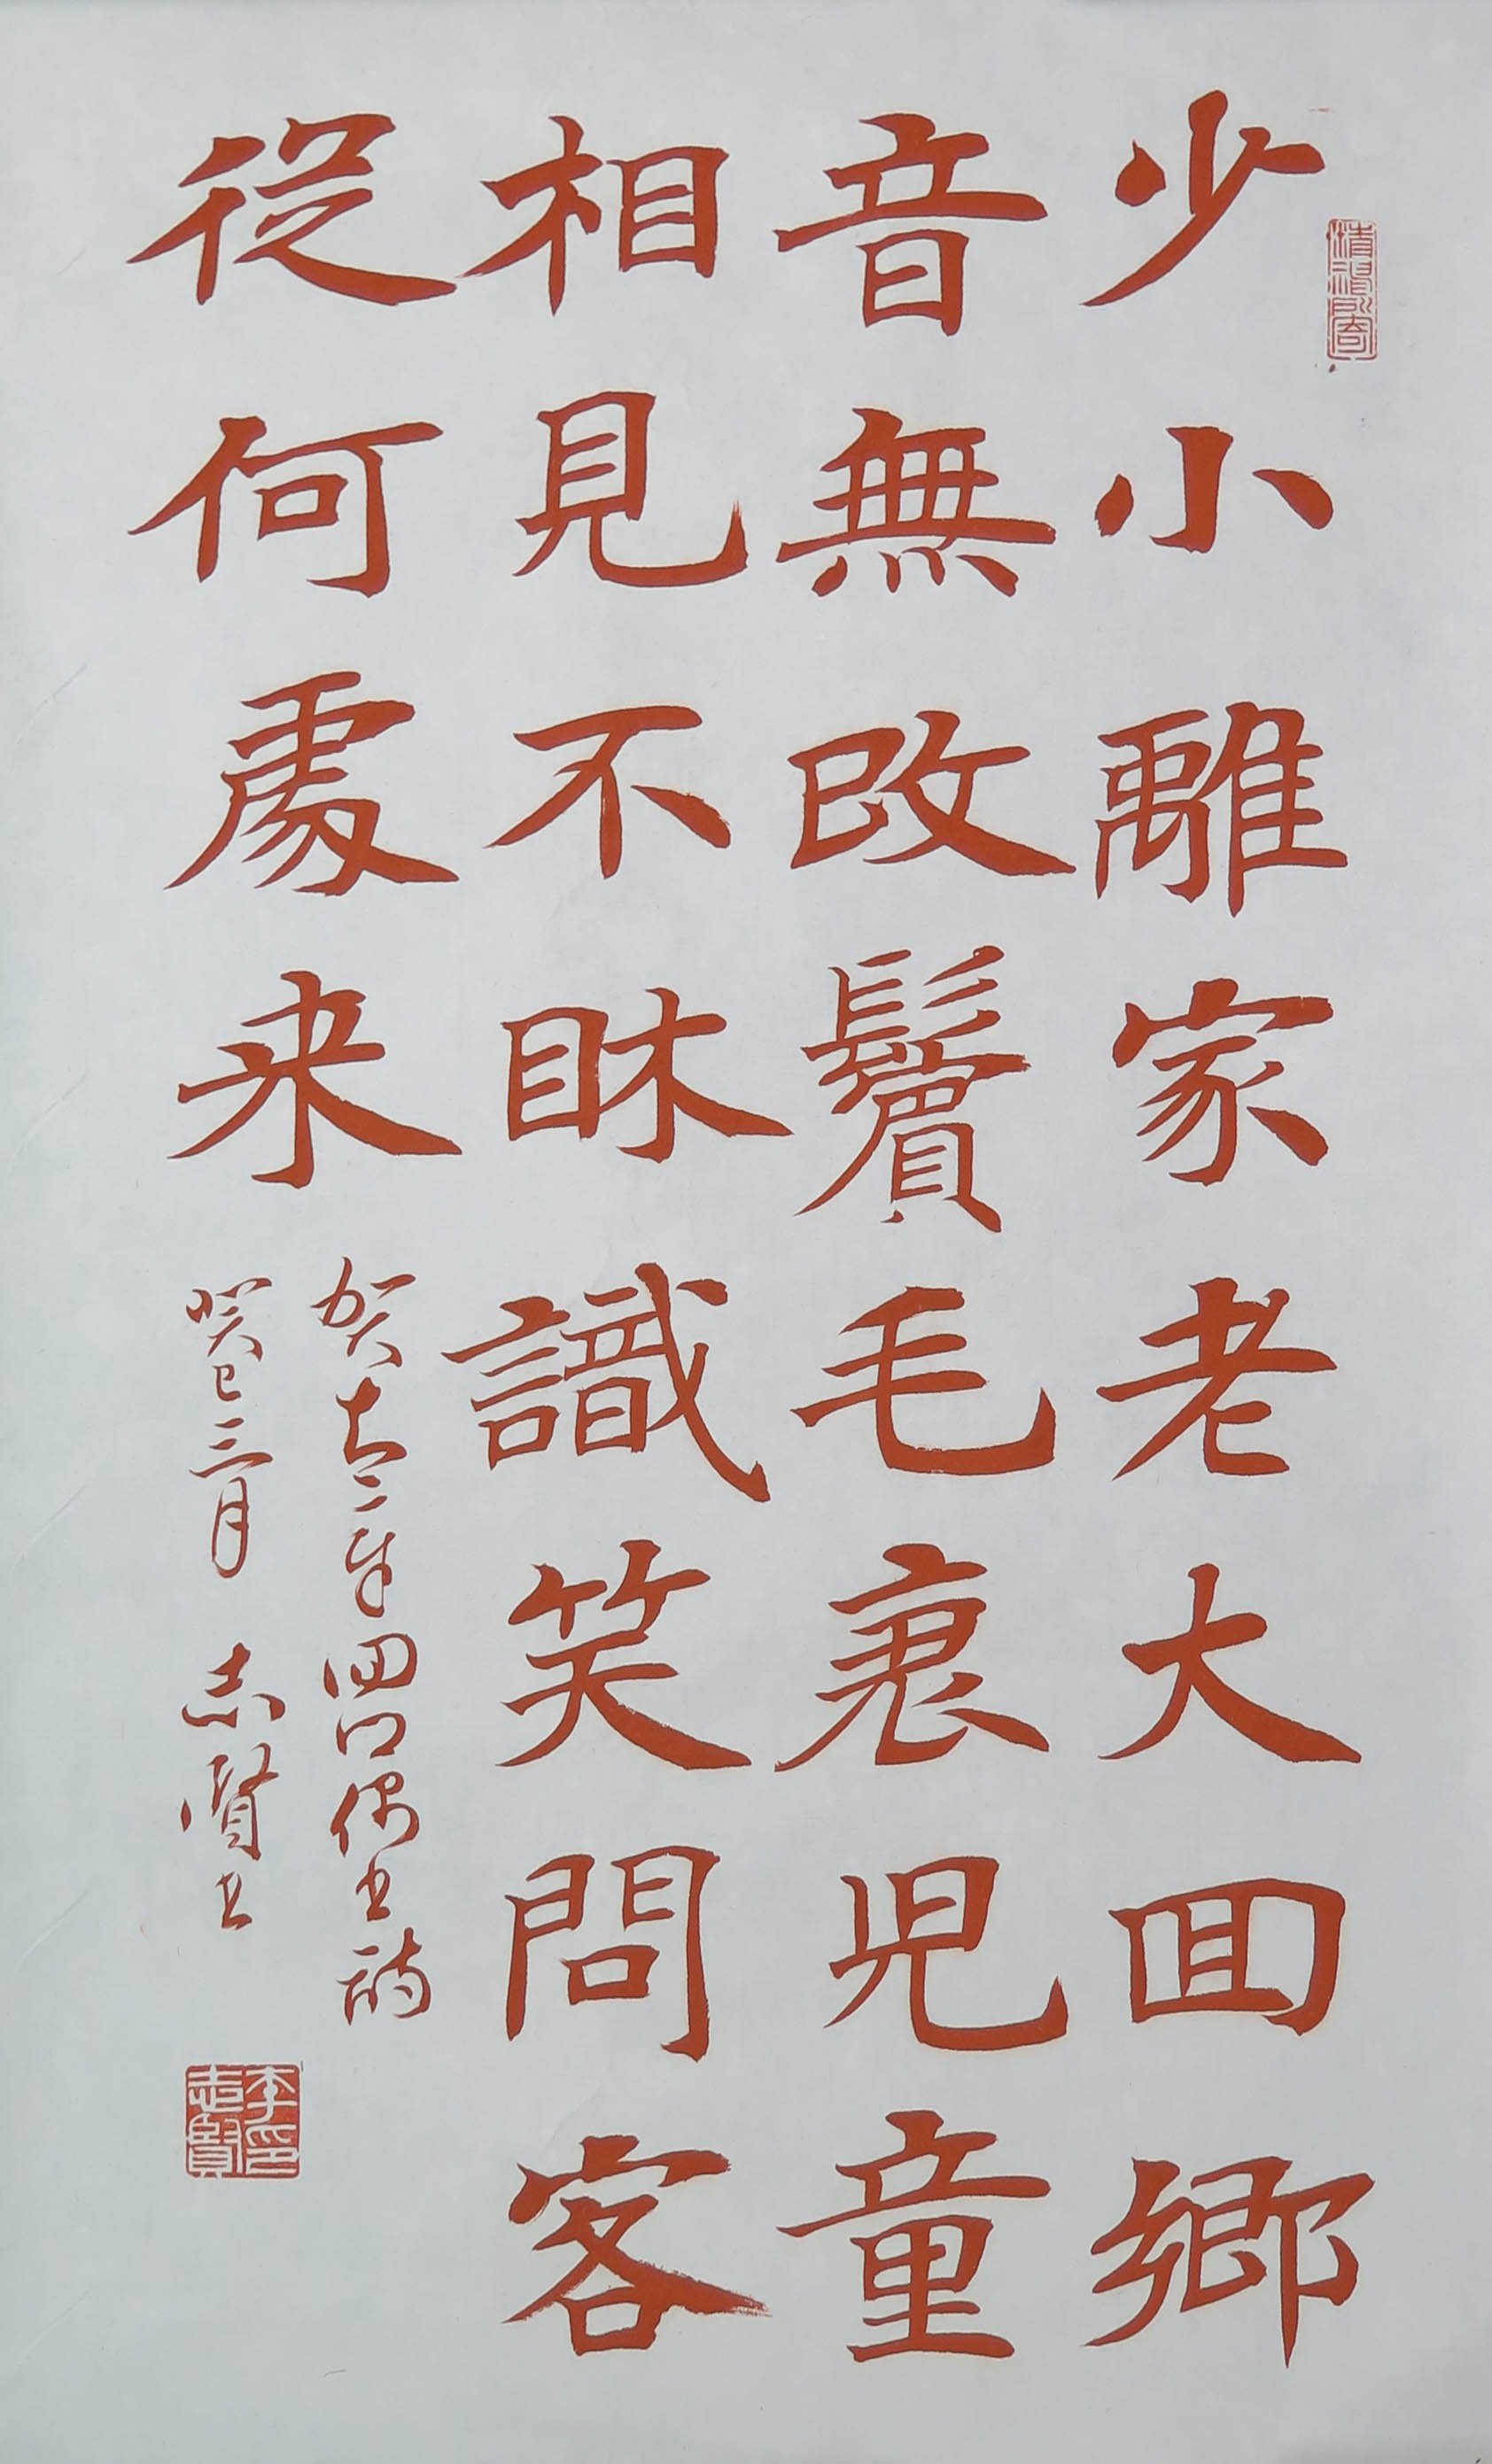 少小離家老大回鄉
音無改鬢毛衰兒童
相見不眜識笑問客
從何處来
賀知章回鄉偶書詩
癸巳三月 志賢書
李志賢印